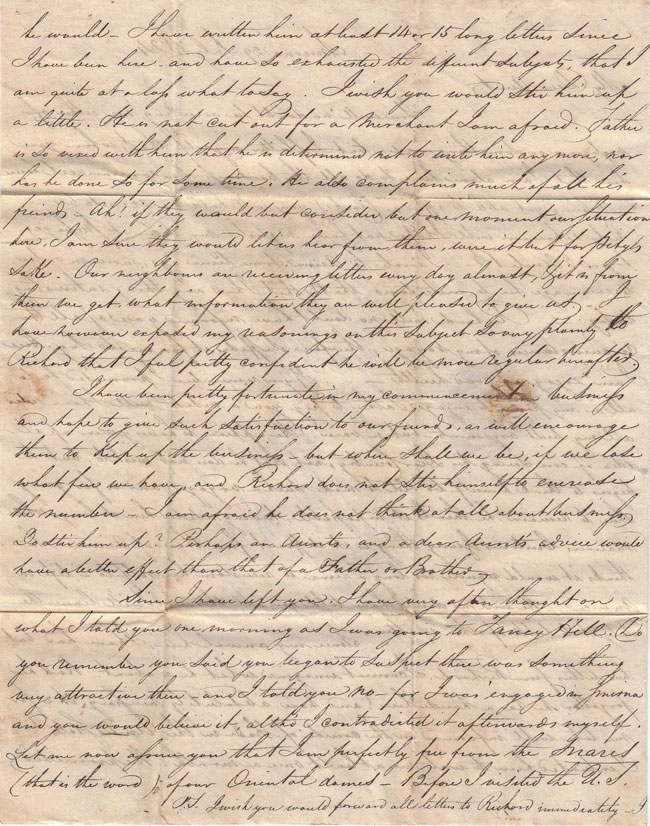 he would – I have written him at least 14 or 15 long letters since
I have been here – and have so exhausted the different subjects, that I
am quite at a loss what to say. I wish you would stir him up
a little. He is not cut out for a Merchant I am afraid. Father
is so vexed with him that he is determined not to write him any more, nor
has he done so for some time. He also complains much of all his
friends – Ah! if they would but consider but one moment our situation
here, I am sure they would let us hear from them, were it but for Pity's
sake. Our neighbours are receiving letters every day almost, & it is from
them we get what information they are well pleased to give us. – I
have however exposed my reasonings on this subject so very plainly to
Richard that I feel pretty confident he will be more regular hereafter,
I have been pretty fortunate in my commencement in business
and hope to give such satisfaction to our friends, as will encourage
them to keep up the business – but where shall we be, if we lose
what few we have, and Richard does not stir himself to encrease
the number – I am afraid he does not think at all about business.
Do stir him up? Perhaps an Aunts, and a dear Aunt's advice would
have a better effect than that of a Father or Brother,
Since I have left you, I have very often thought on
what I told you one morning as I was going to Fancy Hill. (Do
you remember you said you began to suspect there was something
very attractive there – and I told you no – for I was engaged in Smirna
and you would believe it, altho I contradicted it afterwards myself.
Let me now assure you that I am perfectly free from the snares
(that is the word) of our Oriental dames – Before I visited the U.S.
P.S. I wish you would forward all letters to Richard immediately – I